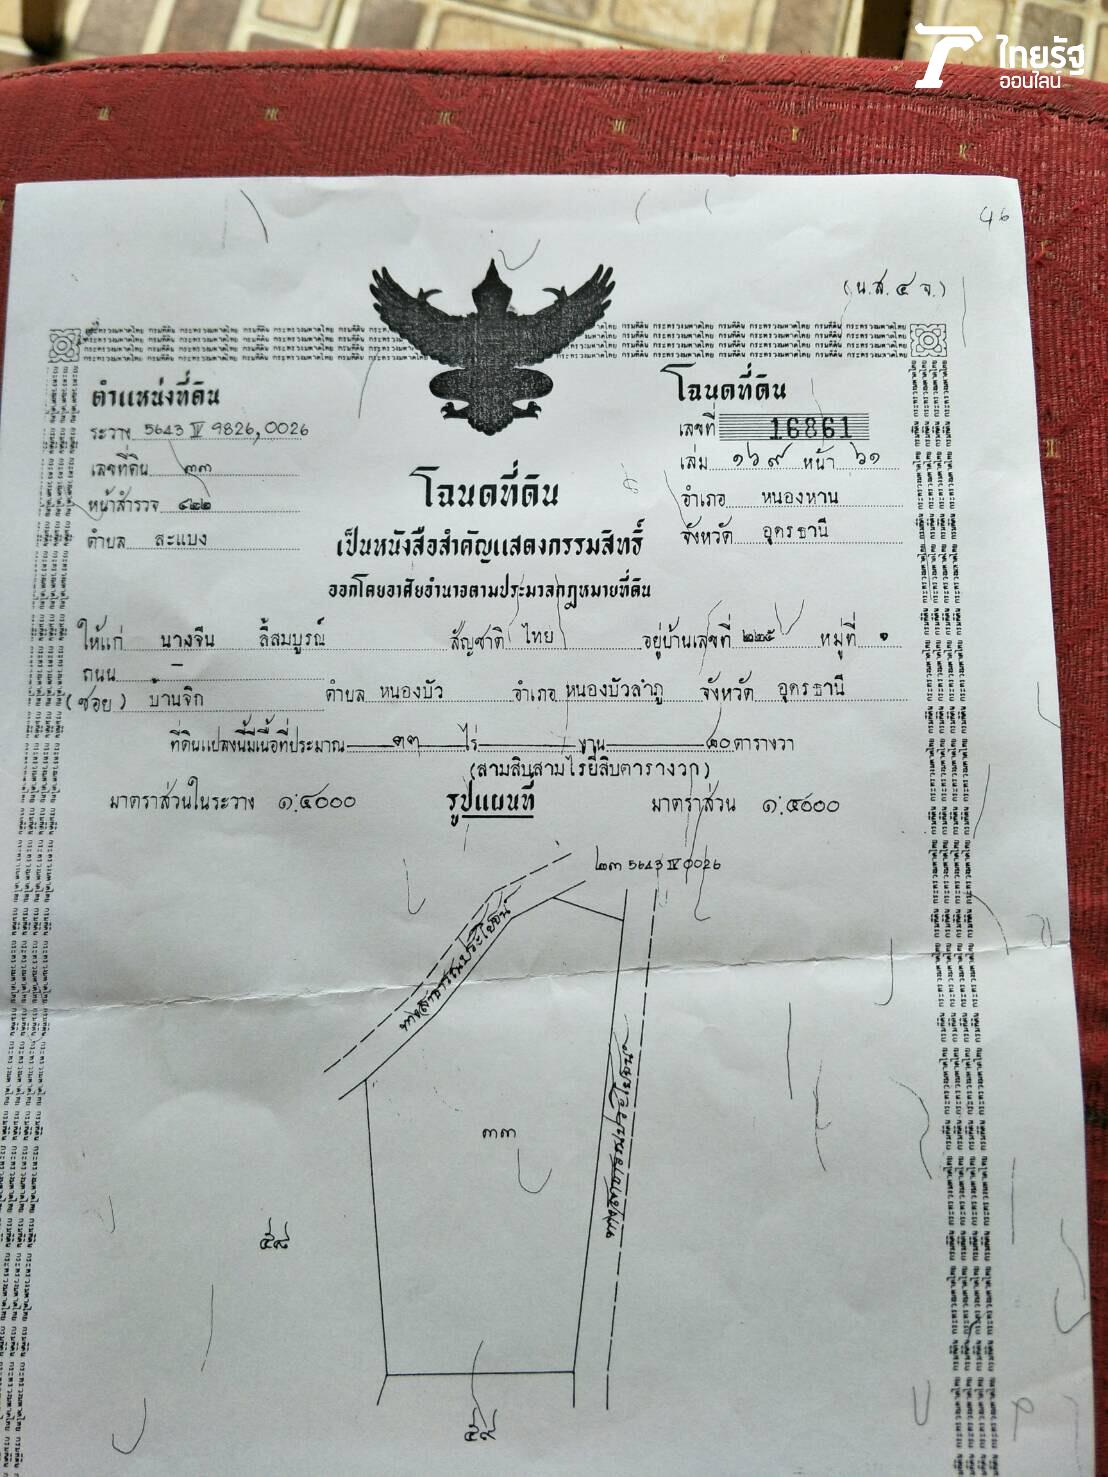 ไทยรัฐ
ออนไลน์
46
(น.ส.๔ จ.)
ตำแหน่งที่ดิน
ระวาง 5643 IV 9826,0026
เลขที่ดิน ๓๓
หน้าสำรวจ ๔๒๒
ตำบล สะแบง
โฉนดที่ดิน
เลขที่ 16861
เล่ม ๑๖๙ หน้า ๖๑
อำเภอ หนองหาน
จังหวัด อุดรธานี
โฉนดที่ดิน
เป็นหนังสือสำคัญแสดงกรรมสิทธิ์
ออกโดยอาศัยอำนาจตามประมวลกฎหมายที่ดิน
ให้แก่ นางจีน ลี้สมบูรณ์ สัญชาติ ไทย อยู่บ้านเลขที่ ๒๒๕ หมู่ที่ ๑
ถนน –
(ซอย) บ้านจิก ตำบล หนองบัว อำเภอ หนองบัวลำภู จังหวัด อุดรธานี
ที่ดินแปลงนี้มีเนื้อที่ประมาณ ๓๓ ไร่ งาน ๒๐ ตารางวา
(สามสิบสามไร่ยี่สิบตารางวา)
มาตราส่วนในระวาง ๑:๔๐๐๐ รูปแผนที่ มาตราส่วน ๑:๔๐๐๐
๒๓ 5643 IV 0026
ทางสาธารณประโยชน์
๓๓